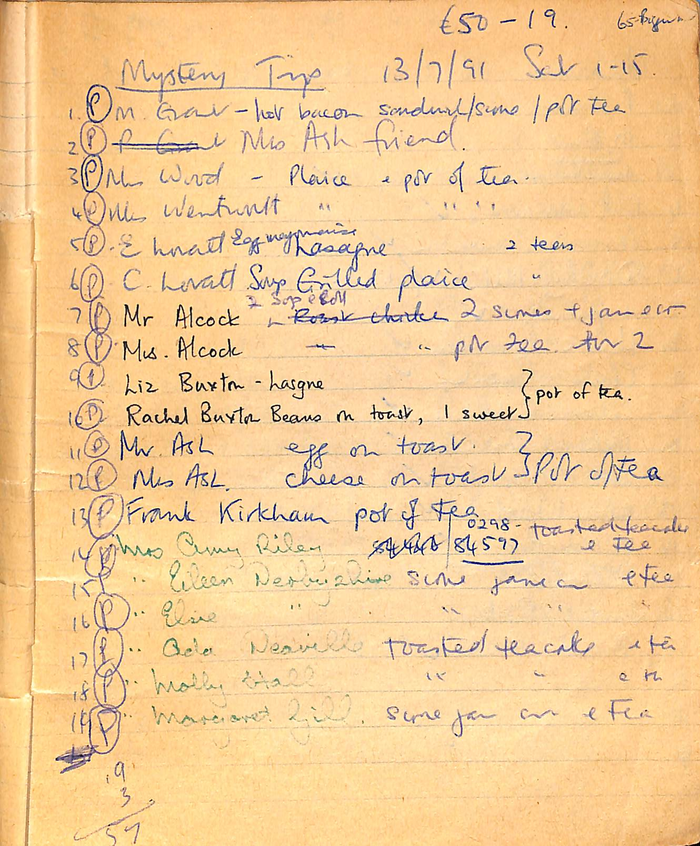 £50 - 19.
Mystery Trip 13/7/91 Sat 1-15.
1. P M. Grant - hot bacon sandwich/scone/pot tea
2 P P Grant Mrs Ash friend.
3 P Mrs Wood - Plaice & pot of tea.
4 P Mrs Wentworth " " " "
5 P E Lovatt Egg mayonnaise Lasagne 2 teas
6 P C. Lovatt Soup Grilled plaice "
2 Soup & Roll
7 P Mr Alcock Roast chicken 2 scones + jam
8 P Mrs. Alcock " " pot tea for 2
9 P Liz Buxton - Lasgne
10 P Rachel Buxton Beans on toast, 1 sweet } pot of tea.
11 P Mr. Ash egg on toast.
12 P Mrs Ash. cheese on toast } Pot of tea
13 P Frank Kirkham pot of tea
0298-
84597
14 P Mrs Amy Riley toasted teacake & tea
15 " Eileen Derbyshire scone jam & tea
16 P " Elsie " " " "
17 P " Ada Neaville toasted teacake & tea
18 P " Molly Hall " " & tea
19 P " Margaret Gill. scone jam & tea
19
3
57